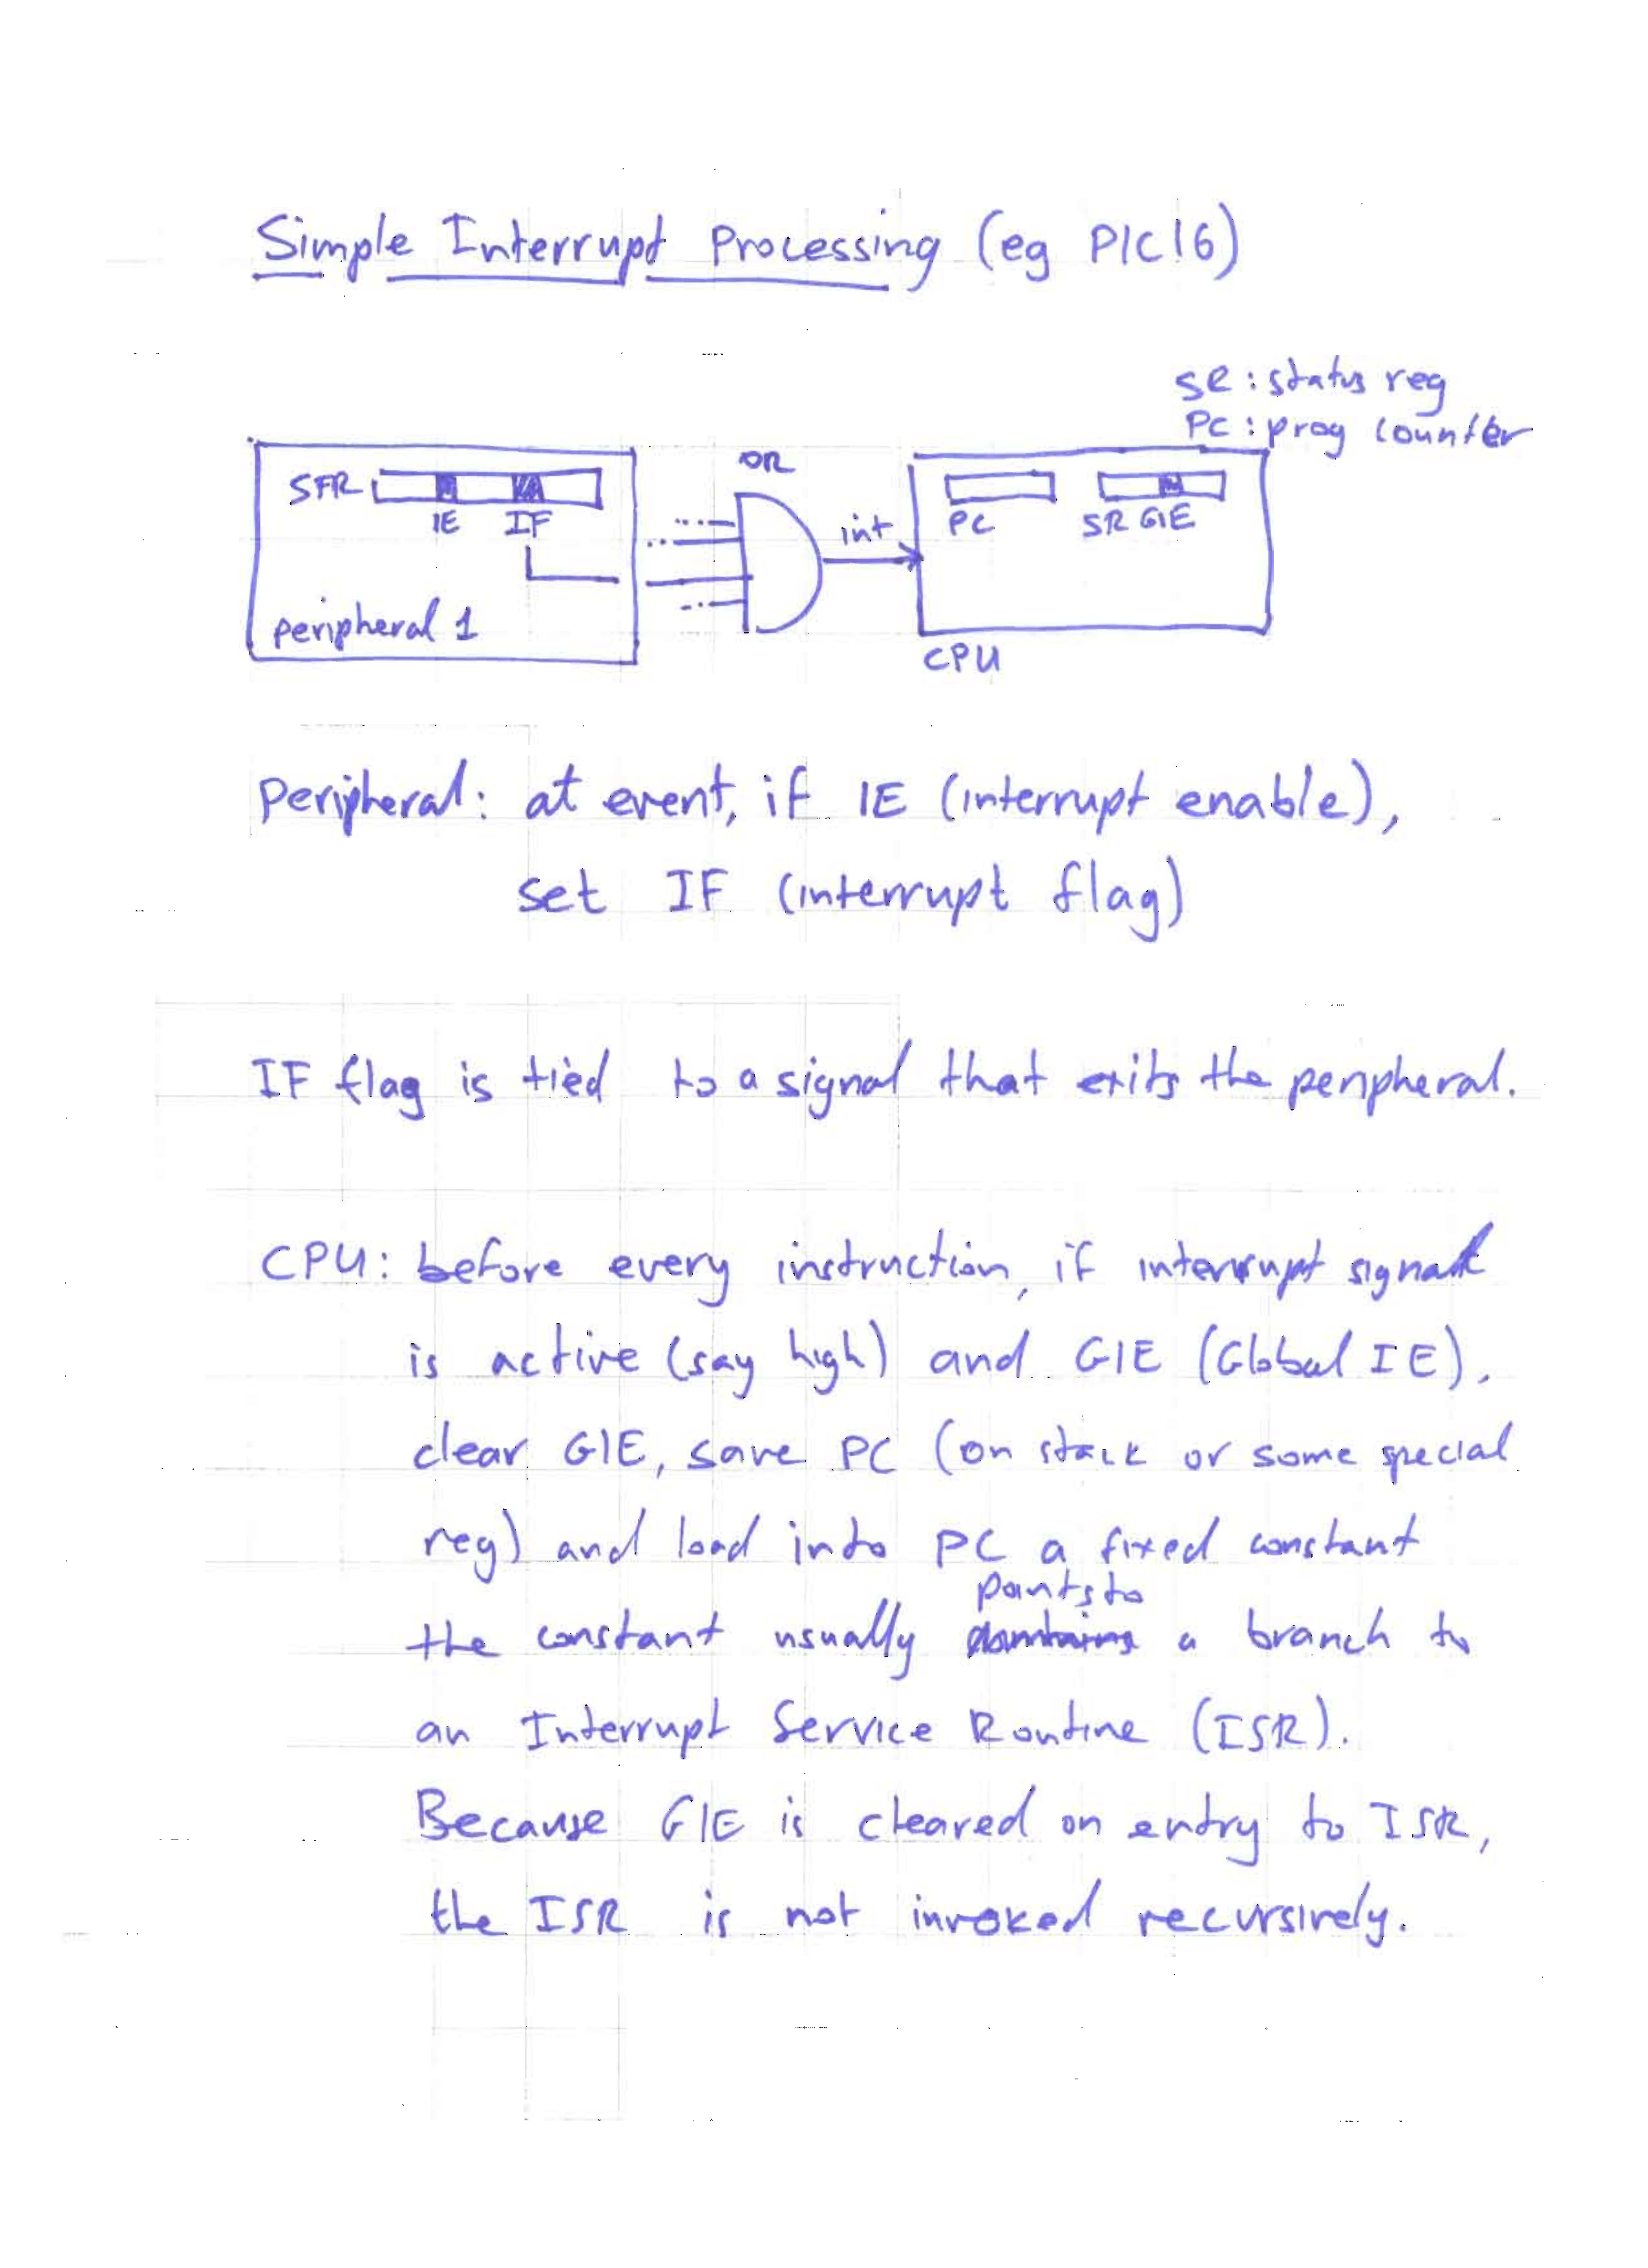 Simple Interrupt Processing (eg PIC16)
SR : status reg
PC : prog counter
OR
SFR
IE IF
int
PC SR GIE
peripheral 1
CPU
Peripheral: at event, if IE (interrupt enable),
set IF (interrupt flag)
IF flag is tied to a signal that exits the peripheral.
CPU: before every instruction, if interrupt signal
is active (say high) and GIE (Global IE),
clear GIE, save PC (on stack or some special
reg) and load into PC a fixed constant
points to
the constant usually a branch to
an Interrupt Service Routine (ISR).
Because GIE is cleared on entry to ISR,
the ISR is not invoked recursively.